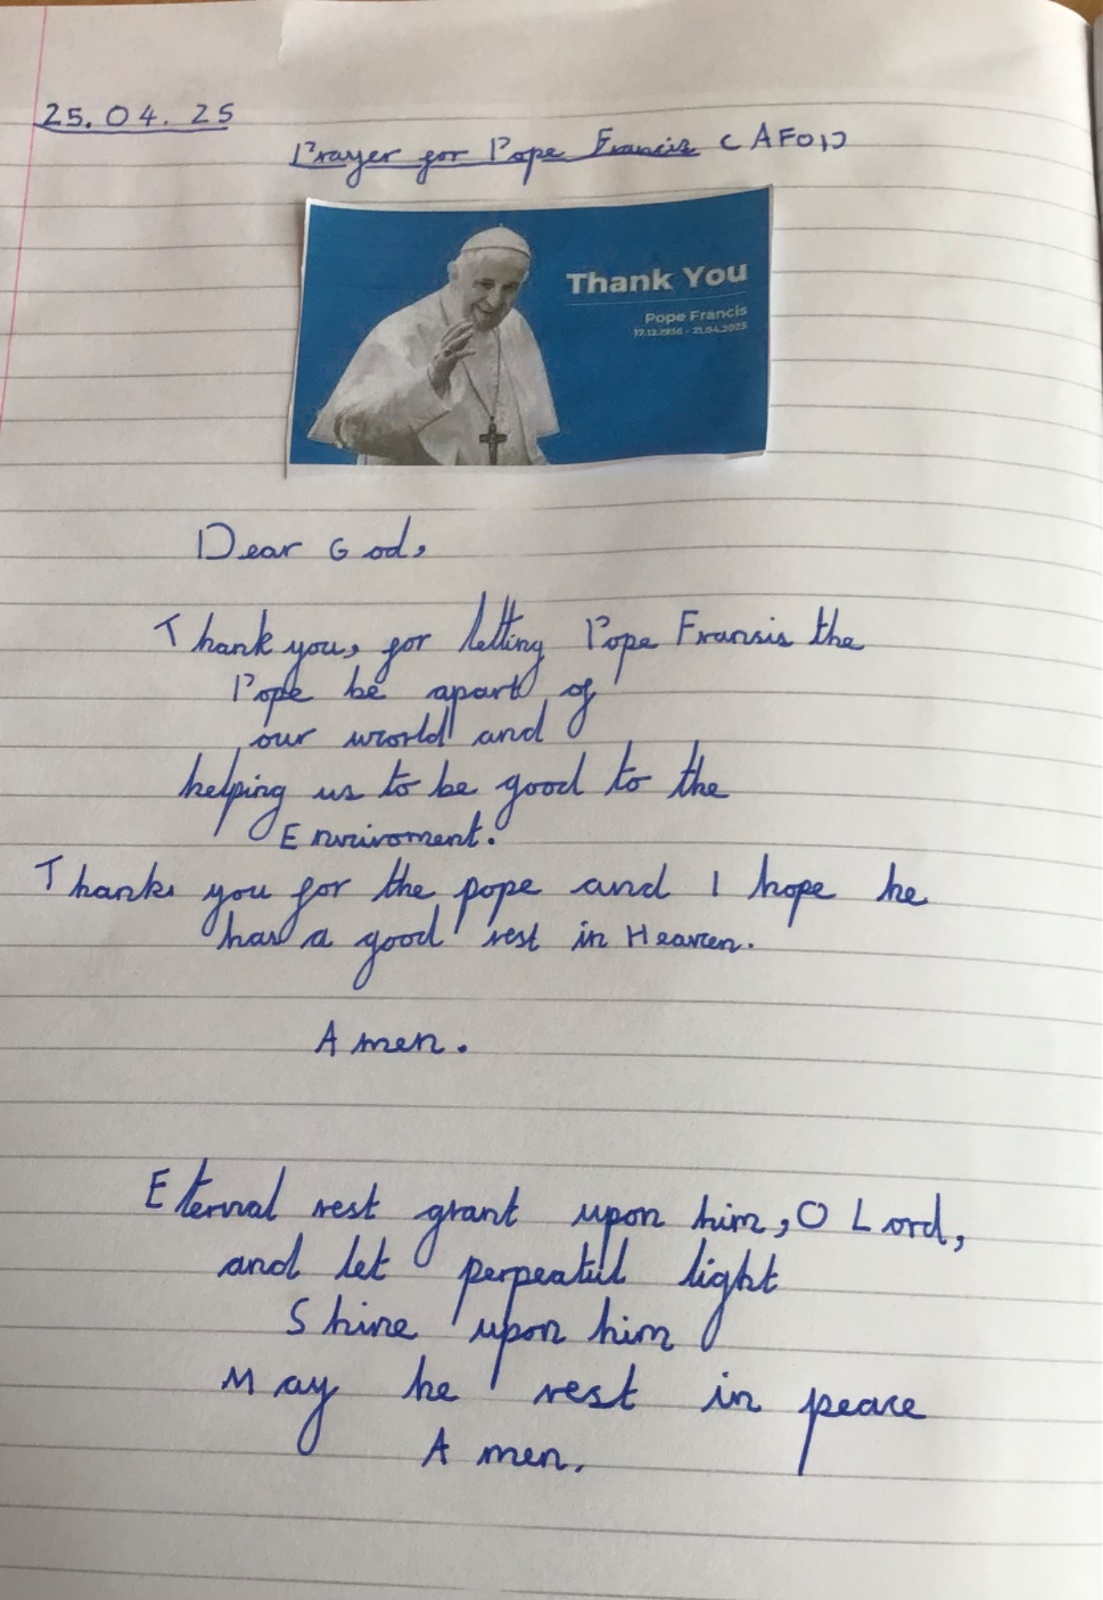 25.04.25
Prayer for Pope Francis (AFOD
Thank You
Pope Francis
17.12.1936 - 21.04.2025
Dear God,
Thank you, for letting Pope Fransis the
Pope be apart of
our world and
helping us to be good to the
Enviroment.
Thanks you for the pope and I hope he
has a good rest in Heaven.
Amen.
Eternal rest grant upon him, O Lord,
and let perpeatul light
Shine upon him
May he rest in peace
Amen.